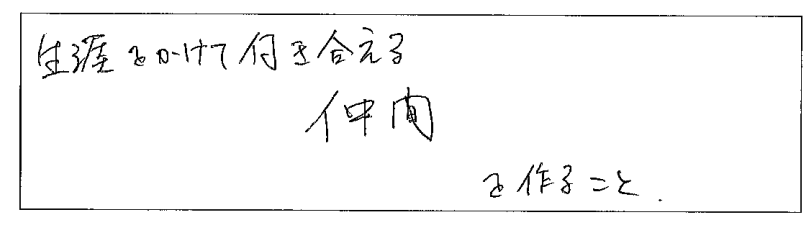 生涯をかけて付き合える
仲間
を作ること.